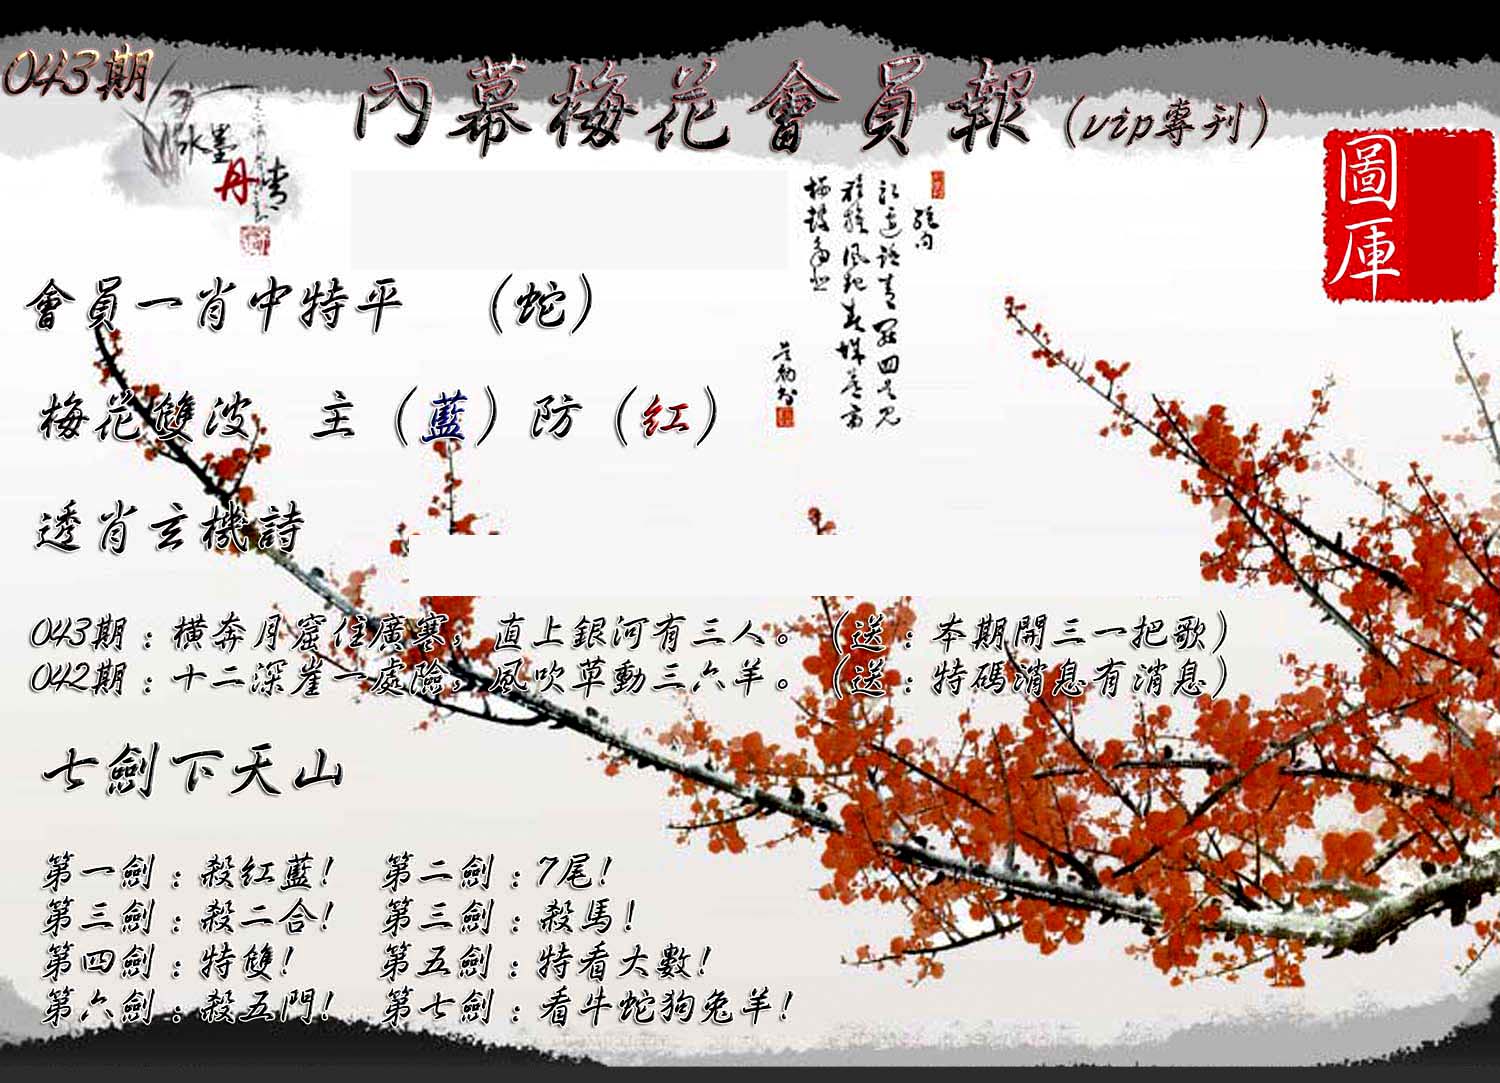 043期
內幕梅花會員報（vip專刊）
水墨
丹青
圖庫
會員一肖中特平 （蛇）
梅花雙波 主（藍）防（紅）
透肖玄機詩
043期：橫奔月窟住廣寒，直上銀河有三人。（送：本期開三一把歌）
042期：十二深崖一處險，風吹草動三六羊。（送：特碼消息有消息）
七劍下天山
第一劍：殺紅藍！ 第二劍：7尾！
第三劍：殺二合！ 第三劍：殺馬！
第四劍：特雙！ 第五劍：特看大數！
第六劍：殺五門！ 第七劍：看牛蛇狗兔羊！